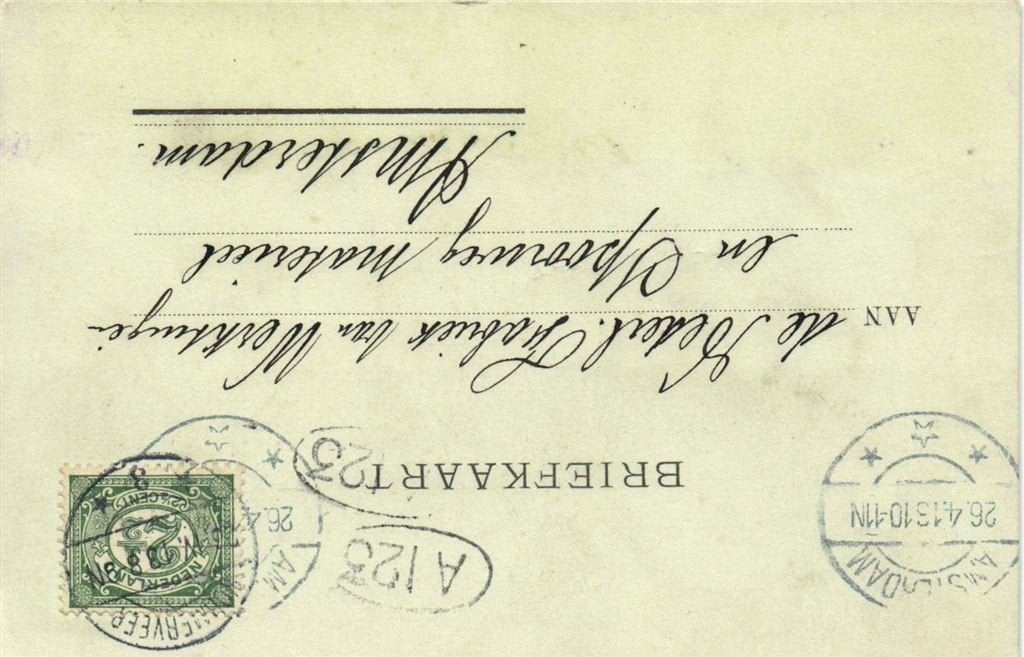 BRIEFKAART
AAN de Nederl. Fabriek van Werktuigen
en Spoorweg materieel
Amsterdam.
A 123
123
AMSTERDAM
26.4.13 10-11N
AM
26.4.1
NEDERLAND
2½
2½ CENT
8N
3